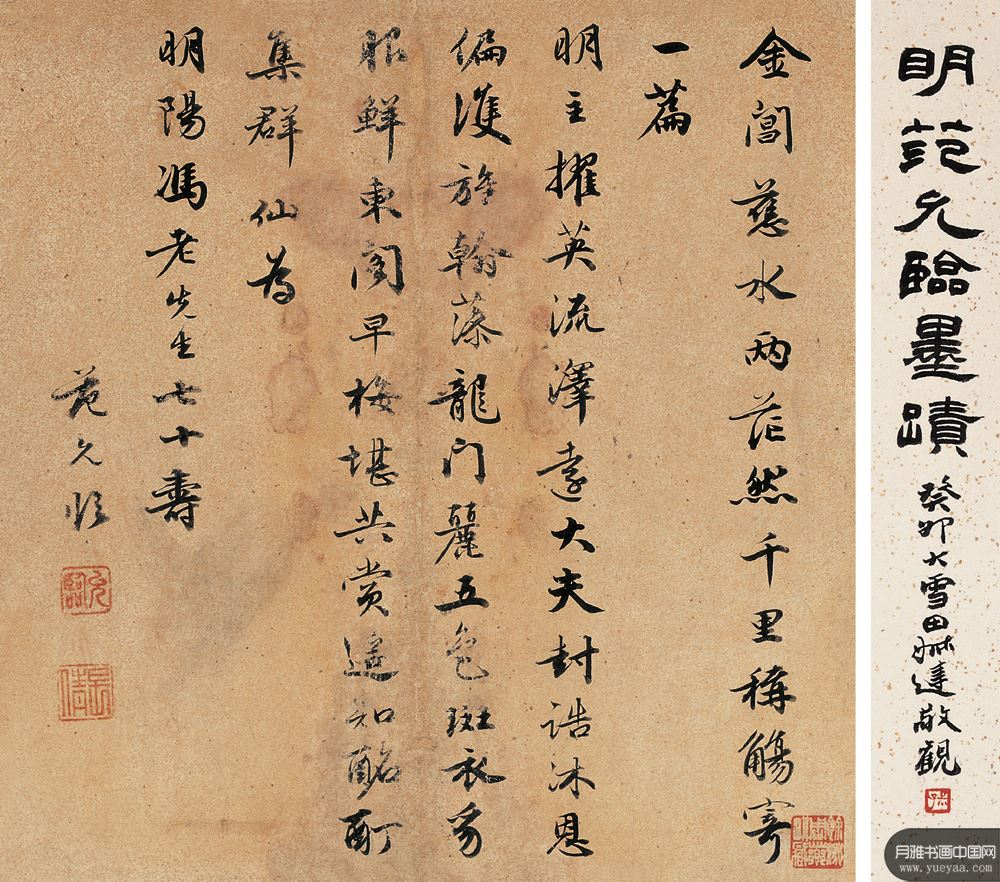 明范允臨墨蹟
癸卯大雪田 敬觀
金閶慈水兩茫然千里稱觴寄
一篇
明主擢英流澤遠大夫封誥沐恩
偏雙旌翰藻龍門麗五色斑衣豸
服鮮東閣早梅堪共賞遥知酩酊
集群仙為
明陽馮老先生七十壽
范允臨
允臨
長倩
月雅书画中国网
www.yueyaa.com